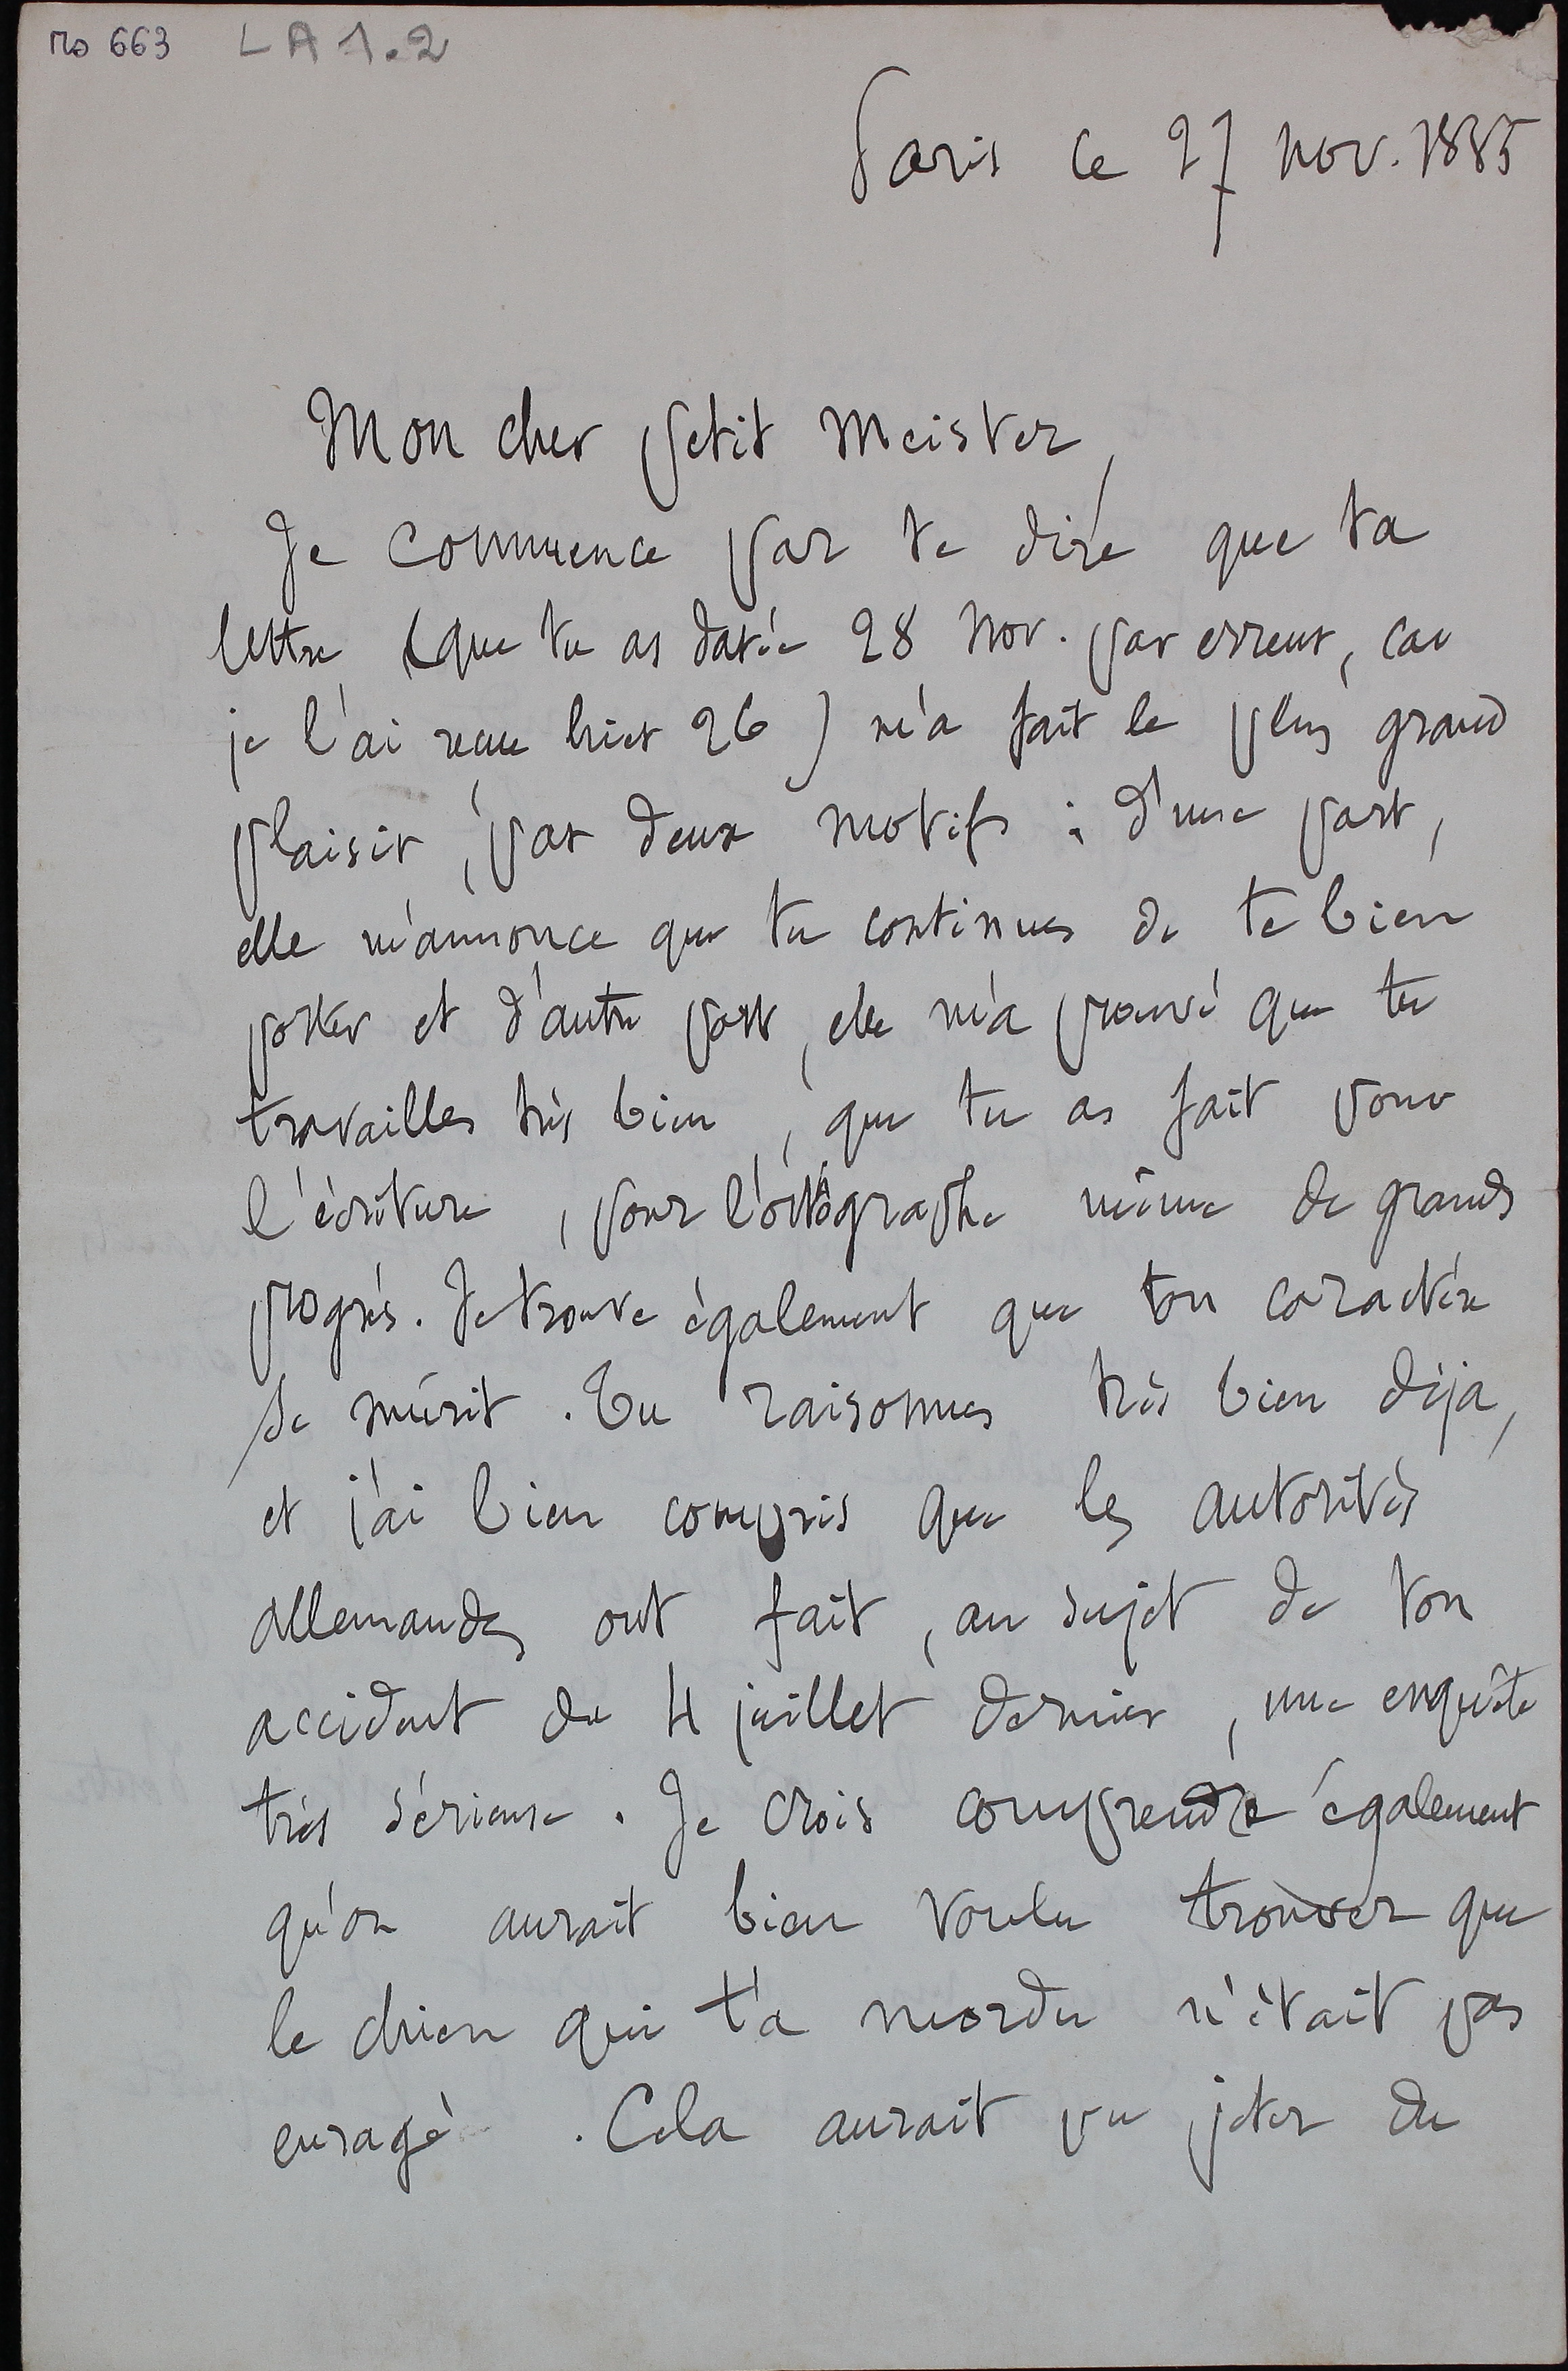 no 663 LA 1.2
Paris ce 27 nov. 1885
Mon cher petit Meister,
Je commence par te dire que ta
lettre (que tu as datée 28 nov. par erreur, car
je l'ai reçue hier 26) m'a fait le plus grand
plaisir, par deux motifs : d'une part,
elle m'annonce que tu continues de te bien
porter et d'autre part, elle m'a prouvé que tu
travailles très bien, que tu as fait pour
l'écriture, pour l'orthographe même de grands
progrès. Je trouve également que ton caractère
se mûrit. Tu raisonnes très bien déja,
et j'ai bien compris que les autorités
allemandes ont fait, au sujet de ton
accident du 4 juillet dernier, une enquête
très sérieuse. Je crois comprendre également
qu'on aurait bien voulu trouver que
le chien qui t'a mordu n'était pas
enragé. Cela aurait pu jeter du